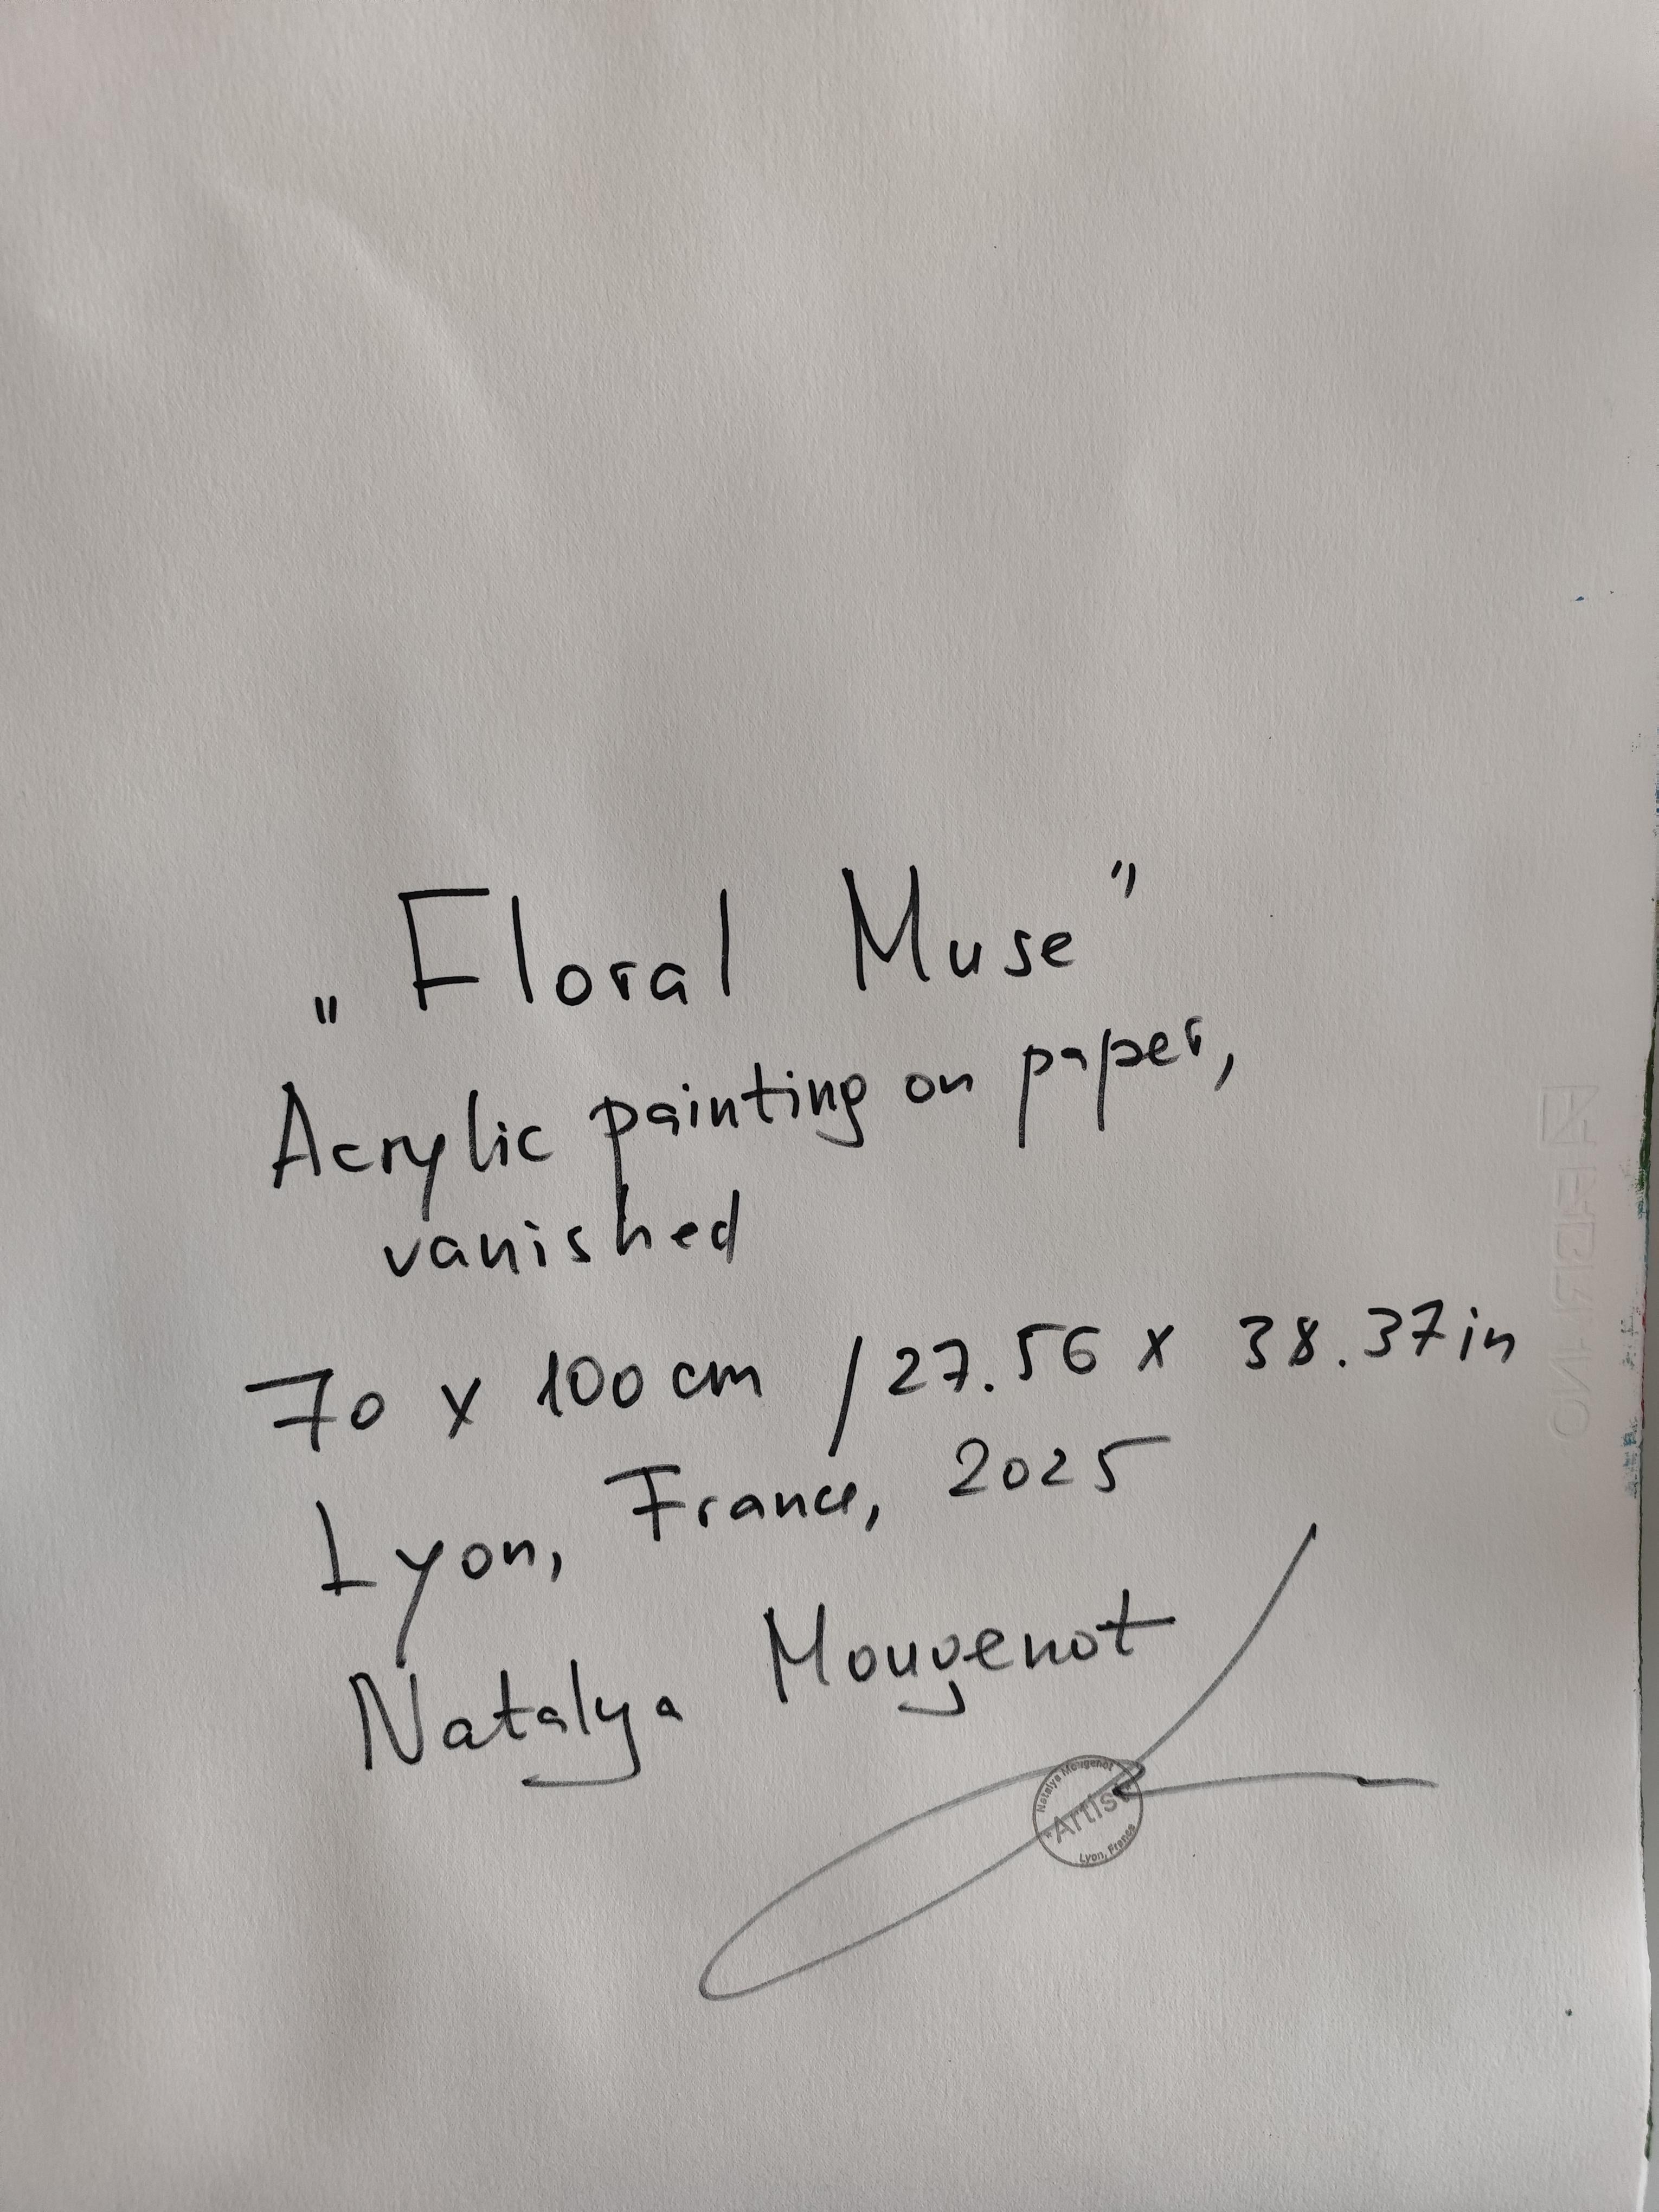 „Floral Muse”
Acrylic painting on paper,
vanished
70 x 100 cm / 27.56 x 38.37 in
Lyon, France, 2025
Natalya Mougenot
Natalya Mougenot
"Artist"
Lyon, France